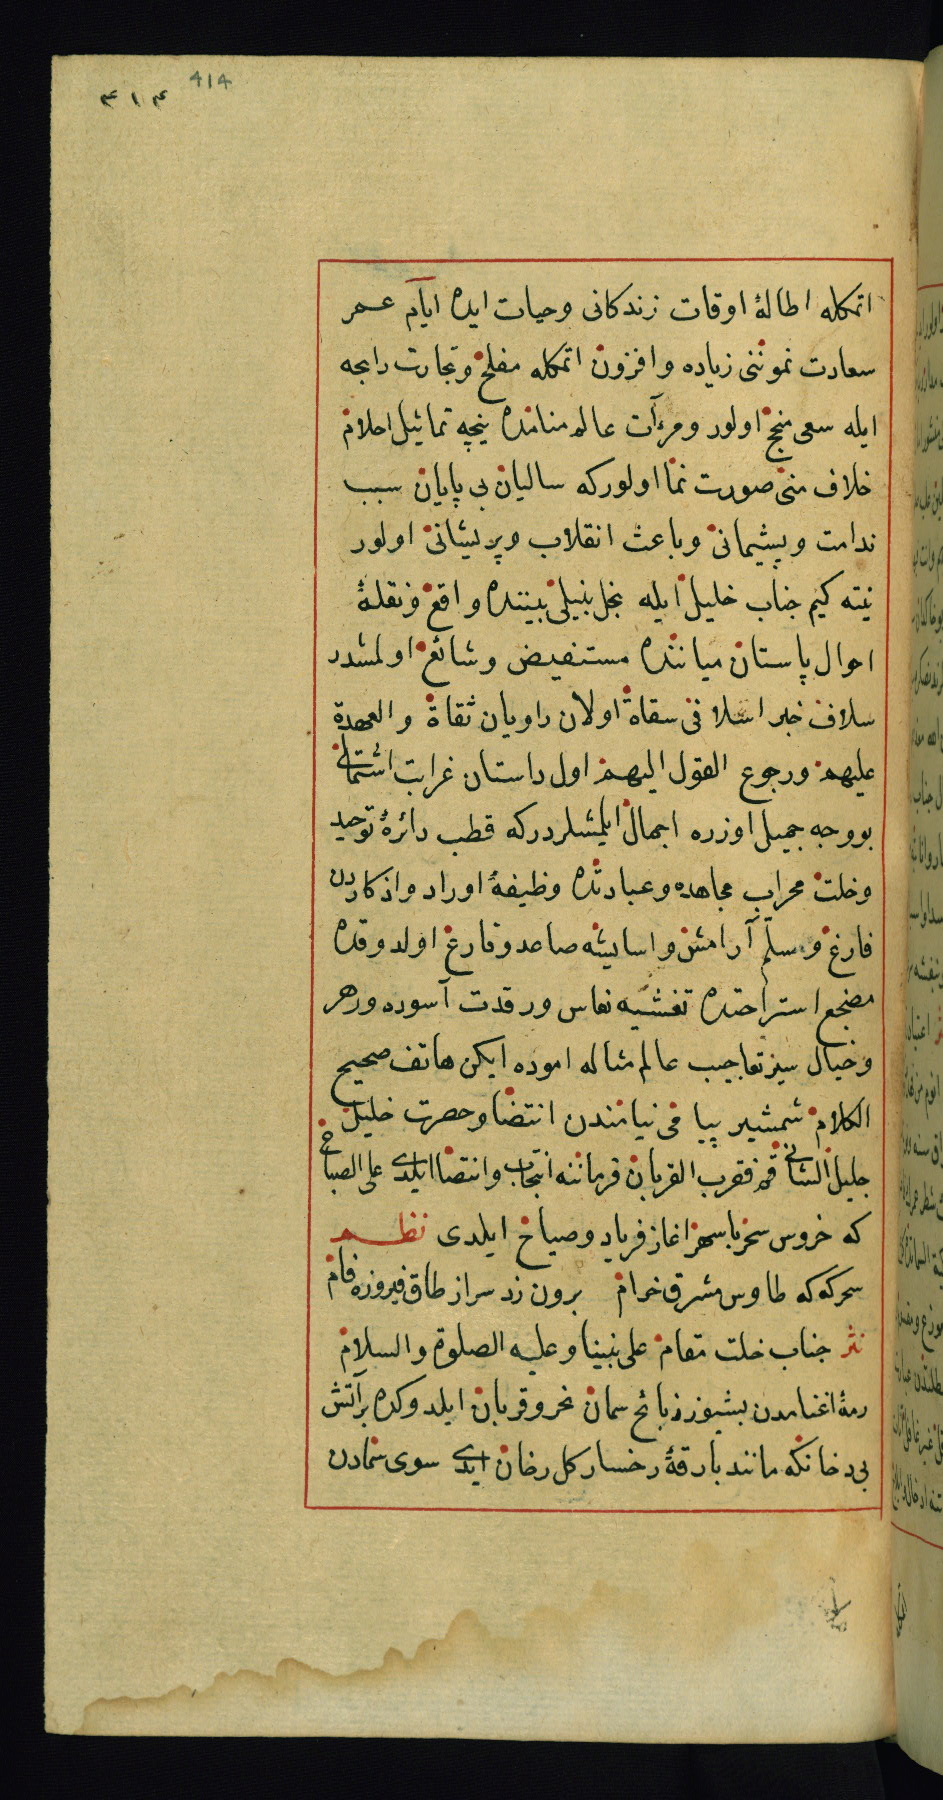 414
٤١٤
اتمكله اطالۀ اوقات زندكانی وحیات ایده ایام عمر
سعادت نموننی زیاده وافزون اتمكله مفلح وتجارت رابحه
ایله سعی منجح اولور ومرآت عالم منامده نیچه تماثیل احلام
خلاف منی صورت نما اولوركه سالیان بی پایان سبب
ندامت وپشیمانی وباعث انقلاب وپریشانی اولور
نیته كیم جناب خلیل ایله نجل نبیلی بیننده واقع ونقلۀ
احوال پاستان میاننده مستفیض وشائع اولمشدر
سلاف خبر اسلافی سقاة اولان راویان ثقاة والعهدة
علیهم ورجوع القول الیهم اول داستان غرابت اشتمالی
بووجه جمیل اوزره اجمال ایلمشلردركه قطب دائرۀ توحید
وخلت محراب مجاهده وعبادتده وظیفۀ اوراد واذكاردن
فارغ وسلّم آرامش واسایشه صاعد وفارع اولدوقده
مضجع استراحتده تغشیه نعاس ورقدت آسوده ورهر
وخیال سیز تعاجیب عالم مثاله اموده ایكن هاتف صحیح
الكلام شمشیر پیامی نیامندن انتضا وحضرت خلیل
جلیل الشانی قم فقرب القربان فرماننه انتخاب وانتضا ایلدی علی الصباح
كه خروس سحر باسهر اغاز فریاد وصیاح ایلدی نظم
سحركه كه طاوس مشرق خرام برون زد سر از طاق فیروزه فام
نثر جناب خلت مقام علی نبینا وعلیه الصلوة والسلام
رمۀ اغنامدن بشیوز ذبائح سمان نحر وقربان ایلدوكده برآتش
بی دخانكه مانند بارقۀ رخسار كل رخان ایدی سوی سمادن